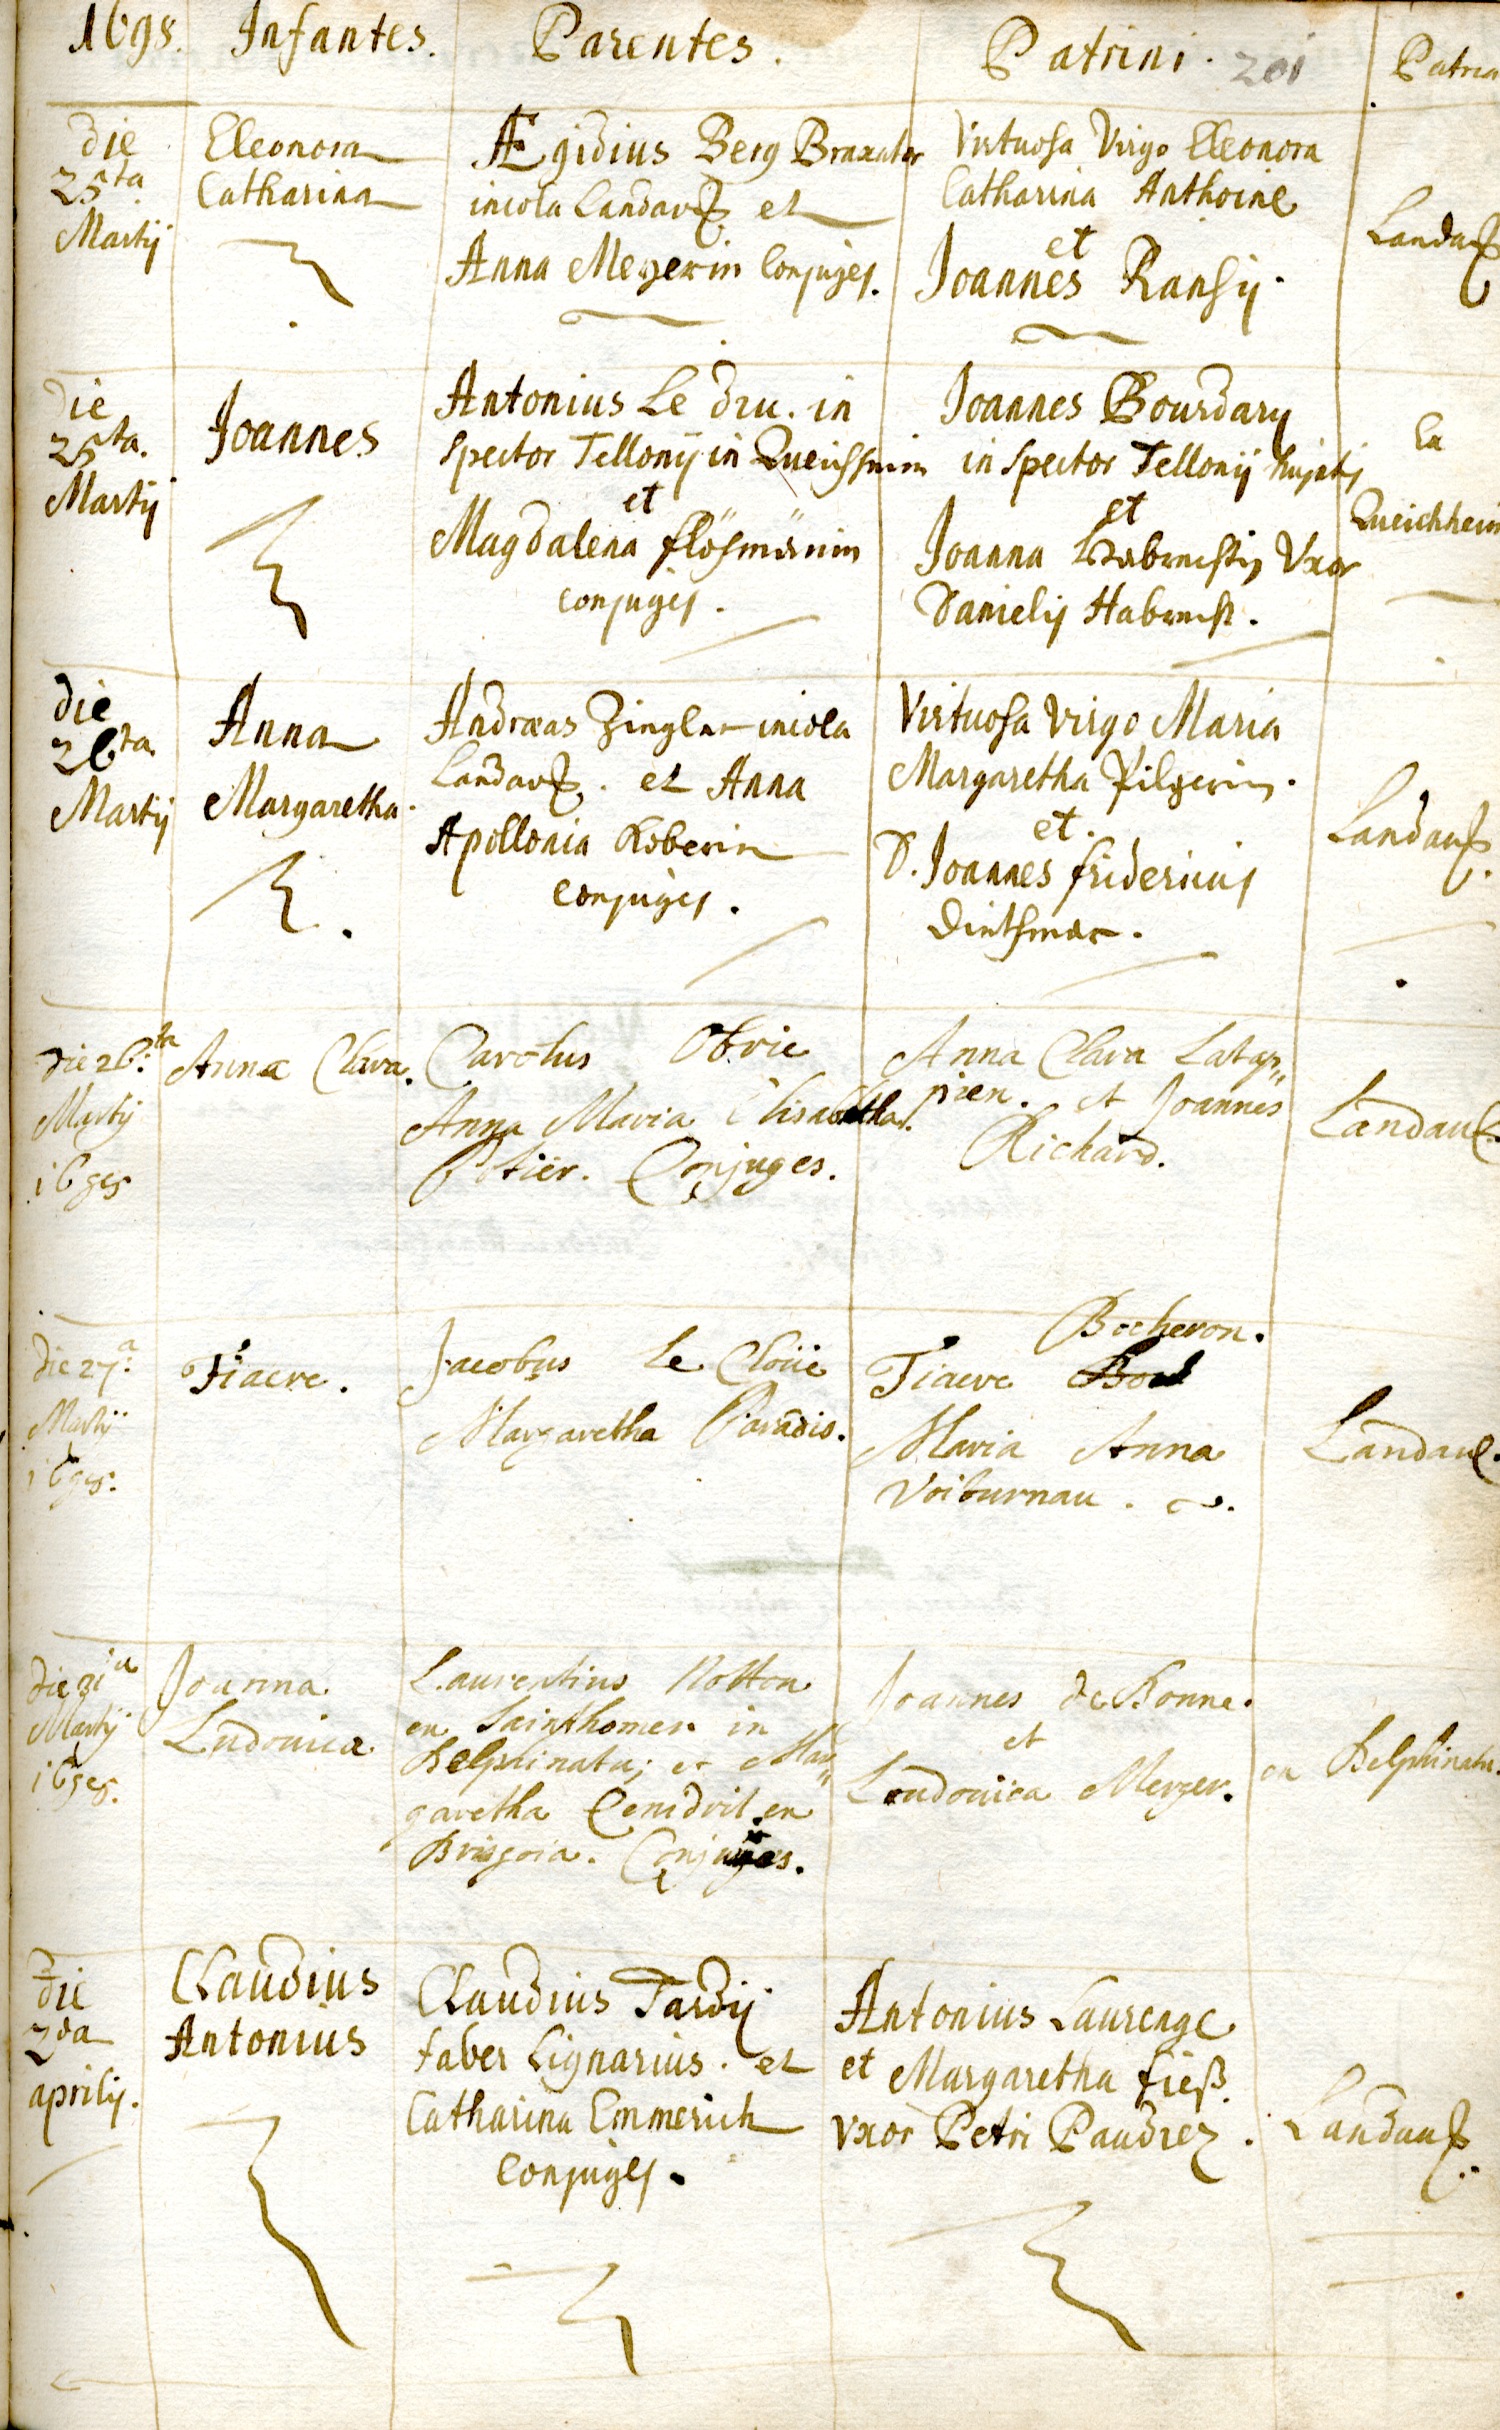 1698. Infantes. Parentes. Patrini. 201 Patria
die
25ta
Martij
Eleonora
Catharina
Ægidius Berg Braxator
incola Landavs et
Anna Meyerin Conjuges.
Virtuosa Virgo Eleonora
Catharina Anthoine
et
Joannes Ransij.
Landavs
die
25ta.
Martij
Joannes
Antonius Le dru. in
spector Tellonij in
et
Magdalena
conjuges.
Joannes Bourdary
inspector Tellonij hujatis
et
Joanna Uxor
Danielis Habrecht.
Ex
Queichheim
die
26ta.
Martij
Anna
Margaretha.
Andræas Zingler incola
Landavs. et Anna
Apollonia Koberin
conjuges.
Virtuosa Virgo Maria
Margaretha Pilgerin.
et.
D. Joannes fridericus
Landaus.
die 26:ta
Martij
1698
Anna Clara.
Carolus Obrie
Anna Maria Elisabetha.
Potier. Conjuges.
Anna Clara Latap„
pien. et Joannes
Richard.
Landaus.
die 27:a
Martij
1698.
Fiacre.
Jacobus le Cloüe
Margaretha Paradis.
Bocheron.
Fiacre
Maria Anna
Voiburnau.
Landaus.
die 31a
Martij
1698.
Joanna
Ludovica
Laurentius Notton
ex Sainthomer in
Delphinatu; et Mar„
garetha ex
Brisgoia. Conjuges.
Joannes de Bonne.
et
Ludovica Merger.
ex Delphinatu.
die
2da
aprilis.
Claudius
Antonius
Claudius Tardij
faber Lignarius. et
Catharina Emmerich
conjuges.
Antonius Laurenge
et Margaretha fieß
vxor Petri Paudrez.
Landaus.